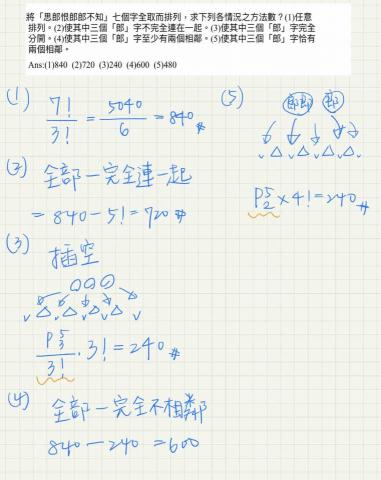 將「思郎恨郎郎不知」七個字全取而排列，求下列各情況之方法數？(1)任意
排列。(2)使其中三個「郎」字不完全連在一起。(3)使其中三個「郎」字完全
分開。(4)使其中三個「郎」字至少有兩個相鄰。(5)使其中三個「郎」字恰有
兩個相鄰。
Ans:(1)840 (2)720 (3)240 (4)600 (5)480
(1) 7!/3! = 5040/6 = 840 #
(2) 全部－完全連一起
= 840 - 5! = 720 #
(3) 插空
P^5_3/3! · 3! = 240 #
(4) 全部－完全不相鄰
840 - 240 = 600
(5) 郎郎 郎
P^5_2 × 4! = 240 #